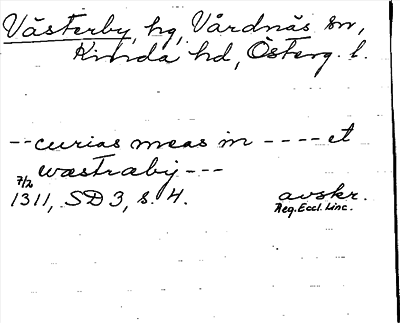 Västerby, hg, Vårdnäs sn,
Kinda hd, Österg. l.
-- curias meas in ---- et
wæstraby ---
7/2
1311, SD 3, s. 4. avskr.
Reg. Eccl. Linc.